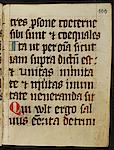 tres psone coeterne
sibi sunt & coequales
Ita ut per oīa sicut
iam supra dictū est:
& unitas i trinita
te & trinitas in unita
te ueneranda sit
Qui uult ergo sal
uus eē ita de trini